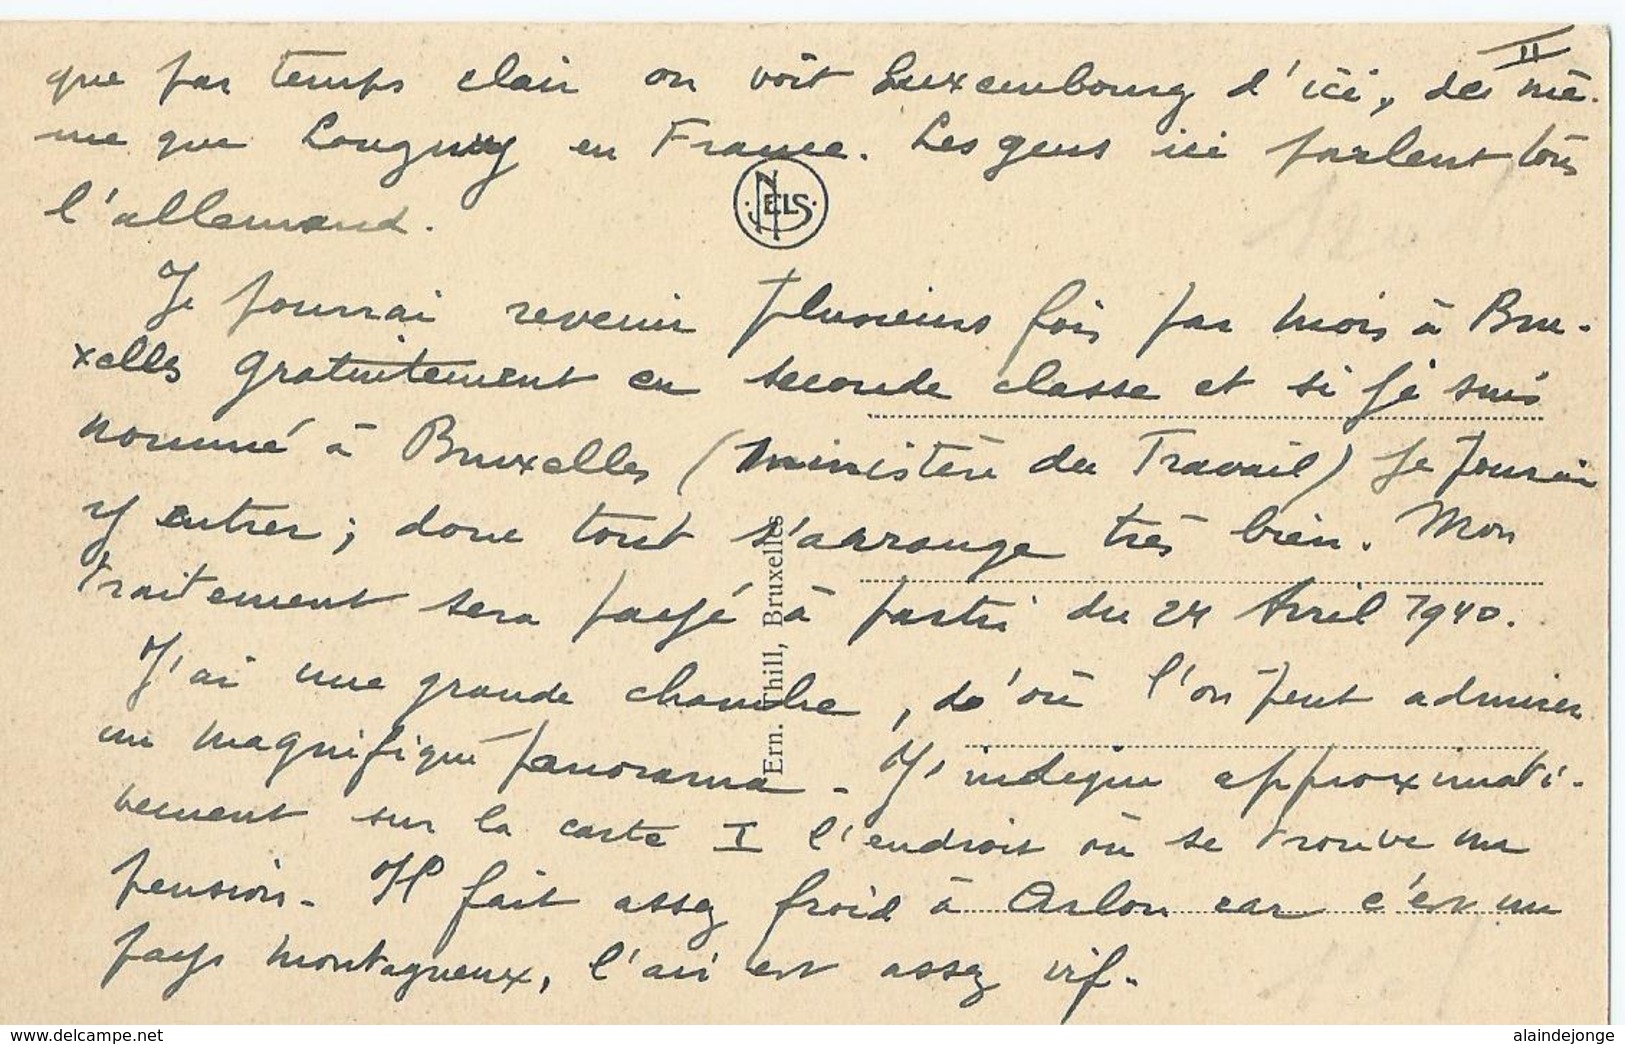 II
que par temps clair on voit Luxembourg d'ici, de mê-
me que Longwy en France. Les gens ici parlent tous
l'allemand.
NELS
Je pourrai revenir plusieurs fois par mois à Bru-
xelles gratuitement en seconde classe et si je suis
nommé à Bruxelles (Ministère du Travail) je pourrai
y entrer; donc tout s'arrange très bien. Mon
traitement sera payé à partir du 24 Avril 1940.
J'ai une grande chambre, d'où l'on peut admirer
un magnifique panorama - J'indique approximati-
vement sur la carte I l'endroit où se trouve ma
pension - Il fait assez froid à Arlon car c'est un
pays montagneux, l'air est assez vif -
Ern. Thill, Bruxelles
www.delcampe.net
alaindejonge